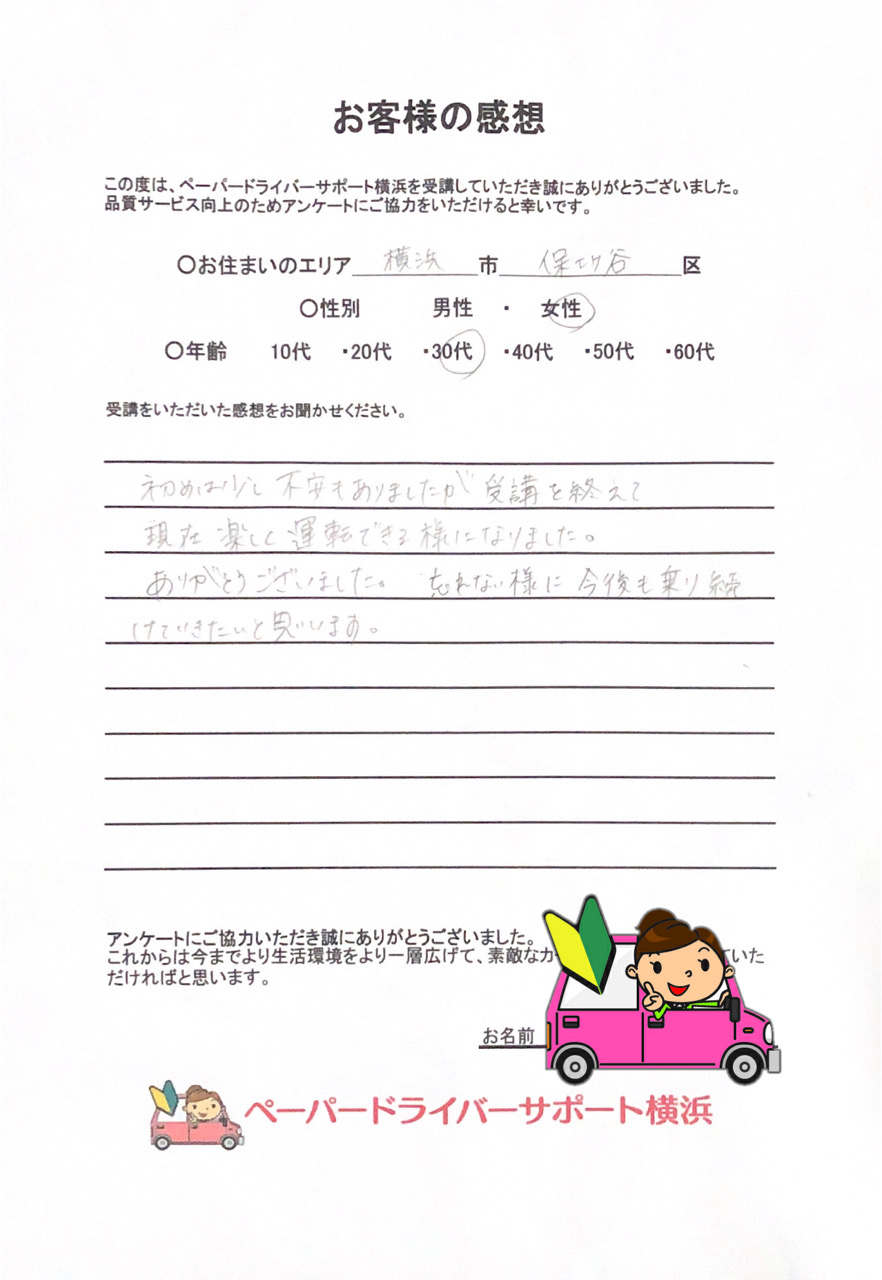 お客様の感想
この度は、ペーパードライバーサポート横浜を受講していただき誠にありがとうございました。
品質サービス向上のためアンケートにご協力をいただけると幸いです。
〇お住まいのエリア 横浜 市 保土ヶ谷 区
〇性別 男性 ・ 女性
〇年齢 10代 ・20代 ・30代 ・40代 ・50代 ・60代
受講をいただいた感想をお聞かせください。
初めは少し不安もありましたが受講を終えて
現在楽しく運転できる様になりました。
ありがとうございました。 忘れない様に今後も乗り続
けていきたいと思います。
アンケートにご協力いただき誠にありがとうございました。
これからは今までより生活環境をより一層広げて、素敵なカ ていた
だければと思います。
お名前
ペーパードライバーサポート横浜